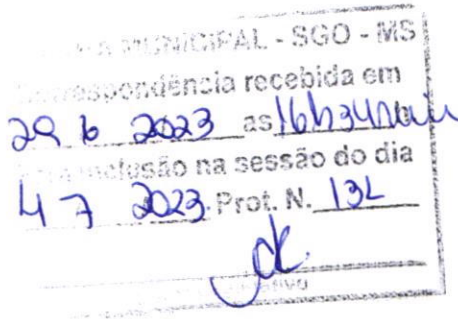 MUNICIPAL - SGO - MS
recebida em
29 6 2023 as 16h34min
inclusão na sessão do dia
4 7 2023. Prot. N.